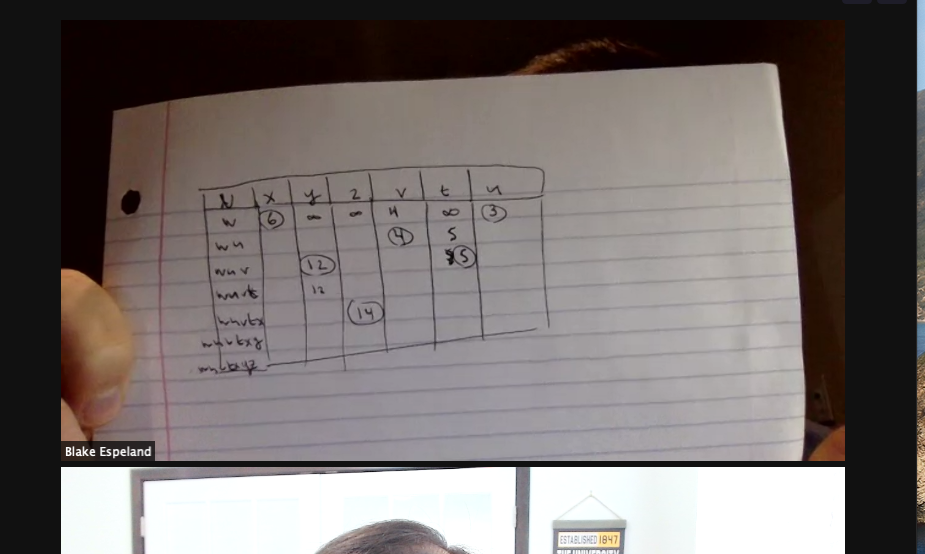 N x y z v t u
w 6 ∞ ∞ 4 ∞ 3
wu 4 5
wuv 12 5
wuvt 12
wuvtx 14
wuvtxy
wuvtxyz
Blake Espeland
ESTABLISHED 1847
THE UNIVERSITY